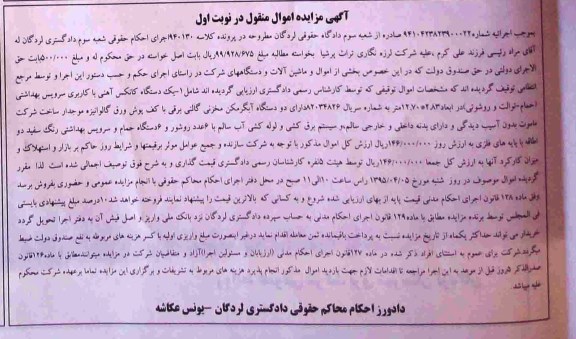 آگهی مزایده اموال منقول در نوبت اول
بموجب اجرائیه شماره ۹۴۱۰۴۲۳۸۲۳۹۰۰۰۲۲ صادره از شعبه سوم دادگاه حقوقی لردگان مطروحه در پرونده کلاسه ۹۴۰۱۳۰ اجرای احکام حقوقی شعبه سوم دادگستری لردگان له
آقای مراد رئیسی فرزند علی کرم ،علیه شرکت لرزه نگاری تراث پرشیا بخواسته مطالبه مبلغ ۹۹/۹۲۸/۶۷۵ریال بابت اصل خواسته در حق محکوم له و مبلغ ۵۰۰/۰۰۰ بابت حق
الاجرای دولتی در حق صندوق دولت که در این خصوص بخشی از اموال و ماشین آلات و دستگاههای شرکت در راستای اجرای حکم و حسب دستور این اجرا و توسط مرجع
انتظامی توقیف گردیده اند که مشخصات اموال توقیفی که توسط کارشناس رسمی دادگستری ارزیابی گردیده اند شامل ۱-یک دستگاه کانکس آهنی با کاربری سرویس بهداشتی
(حمام-توالت و روشوئی)در ابعاد ۲.۷۰۰۵.۴۸۳متر به شماره سریال ۸۲۰۳۴۸۲۶دارای دو دستگاه آبگرمکن مخزنی گالنی برقی با کف پوش ورق گالوانیزه موجدار ساخت شرکت
ماموت بدون آسیب دیدگی و دارای بدنه داخلی و خارجی سالم،و سیستم برق کشی و لوله کشی آب سالم با ۶عدد روشور و ۶دستگاه حمام و سرویس بهداشتی رنگ سفید دو
اطاقه با پایه های فلزی به ارزش روز ۱۴۶/۰۰۰/۰۰۰ریال ارزش کل اموال مذکور با توجه به شرکت سازنده و جمیع عوامل موثر برقیمتها و شرایط روز حاکم بر بازار و استهلاک و
میزان کارکرد آنها به ارزش کل جمعا ۱۴۶/۰۰۰/۰۰۰ریال توسط هیئت ۵نفره کارشناسان رسمی دادگستری قیمت گذاری و به شرح فوق توصیف اجمالی شده است لذا مقرر
گردیده اموال موصوف در روز شنبه مورخ ۱۳۹۵/۰۴/۰۵ راس ساعت ۱۰الی ۱۱ صبح در محل دفتر اجرای احکام محاکم حقوقی با انجام مزایده عمومی و حضوری بفروش برسد
وفق ماده ۱۲۸ قانون اجرای احکام مدنی قیمت پایه از بهای ارزیابی شده شروع و به کسانی که بالاترین قیمت را پیشنهاد نمایند فروخته خواهد شد۱۰درصد مبلغ پیشنهادی بایستی
فی المجلس توسط برنده مزایده مطابق با ماده ۱۲۹ قانون اجرای احکام مدنی به حساب سپرده دادگستری لردگان نزد بانک ملی واریز و اصل فیش آن به دفتر اجرا تحویل گردد
خریدار می تواند حداکثر یکماه از تاریخ مزایده نسبت به پرداخت باقیمانده ثمن معامله اقدام نماید درغیر اینصورت مبلغ واریزی اولیه با کسر هزینه های مربوطه به نفع صندوق دولت ضبط
میگردد.شرکت برای عموم به استثنای افراد ذکر شده در ماده ۱۲۷قانون اجرای احکام مدنی (ارزیابان و مسئولین اجرا)آزاد و متقاضیان شرکت در مزایده میتوانندمطابق با ماده۱۲۶قانون
صدرالذکر ۵روز قبل از موعد به این اجرا مراجعه تا اقدامات لازم جهت بازدید اموال مذکور انجام پذیرد هزینه های مربوط به تشریفات و برگزاری این مزایده تماما برعهده شرکت محکوم
علیه میباشد
دادورز احکام محاکم حقوقی دادگستری لردگان -یونس عکاشه